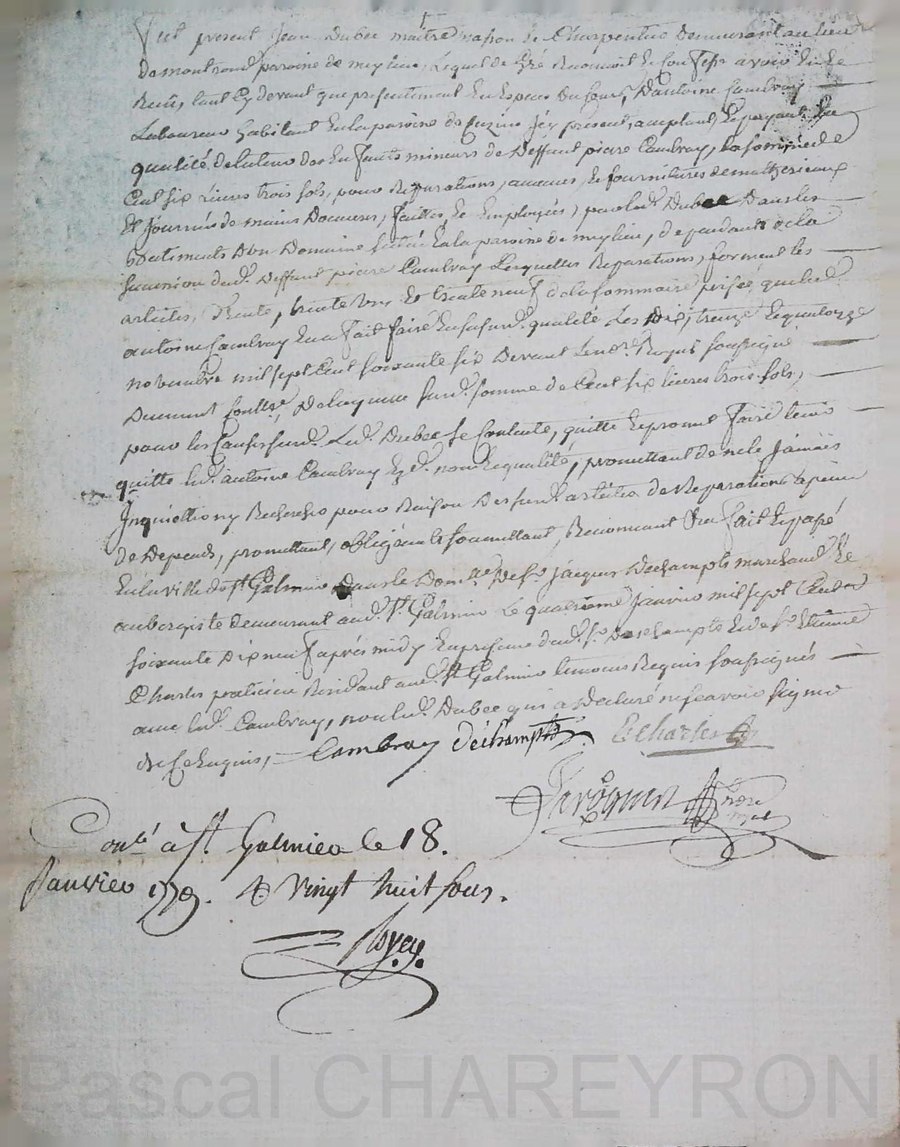 fut present Jean Dubec maître masson & Charpentier demeurant au lieu
de montrond paroisse de meylieu, Lequel de gré Reconnoit et confesse avoir eu et
Reçu, tant cy devant que presentement En especes du cours, D'antoine Cambray
Laboureur habitant En la paroisse de Cuzieu icy present, acceptant, et payant En
qualité de tuteur des Enfants mineurs de Deffunt piere Cambray, la somme de
Cent six livres trois sols, pour Reparations, avances, et fournitures de matterieaux
Et journées de mains D'oeuvres, faittes, et Employées, par led. Dubec Dans les
batiments D'un Domaine scitué En la paroisse de meylieu, dependant de la
succession dud. Deffunt piere Cambray Lesquelles Reparations, forment les
articles, trente, trente un et trente neuf de la sommaire prisée que led.
antoine Cambray En a fait faire En sa susd. qualité Les Dix, treize et quatorze
novembre mil sept Cent soixante six Devant Le no.re Royal soussigné
Duement Conttlé, De laquelle susd. somme de Cent six livres trois sols,
pour les Causes susd. Led. Dubec se Contente, quitte et promet faire tenir
quitte led. antoine Cambray Ez d. nom et qualité, promettant de ne le jamais
Inquietter ny Rechercher pour Raison Des susd. articles de Reparations a peine
de Depens, promettant, obligeant soumettant, Renonceant fait et passé
En la ville de St Galmier Dans le Domlle de Sr Jacques Dechampts marchand et
aubergiste demeurant aud. St Galmier Le quatrieme Janvier mil sept Cent
soixante Dix neuf après midy En presence dud. Sr Deschampts Et de Sr Etienne
Charles praticien Residant aud. St Galmier temoins Requis soussignés
avec led. Cambray, non led. Dubec qui a Declaré ne sçavoir signer
de ce Enquis,
Cambray Déchampts E charles
Conlé à St. Galmier le 18.
Janvier 1779. R vingt huit sous.